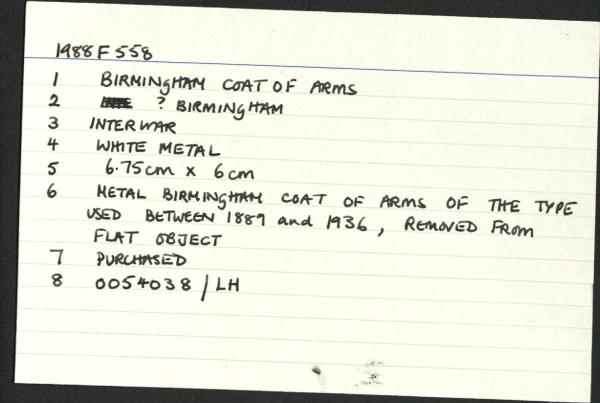 1988 F 558
1 BIRMINGHAM COAT OF ARMS
2 ? BIRMINGHAM
3 INTERWAR
4 WHITE METAL
5 6.75cm x 6cm
6 METAL BIRMINGHAM COAT OF ARMS OF THE TYPE
USED BETWEEN 1889 and 1936, REMOVED FROM
FLAT OBJECT
7 PURCHASED
8 0054038 / LH